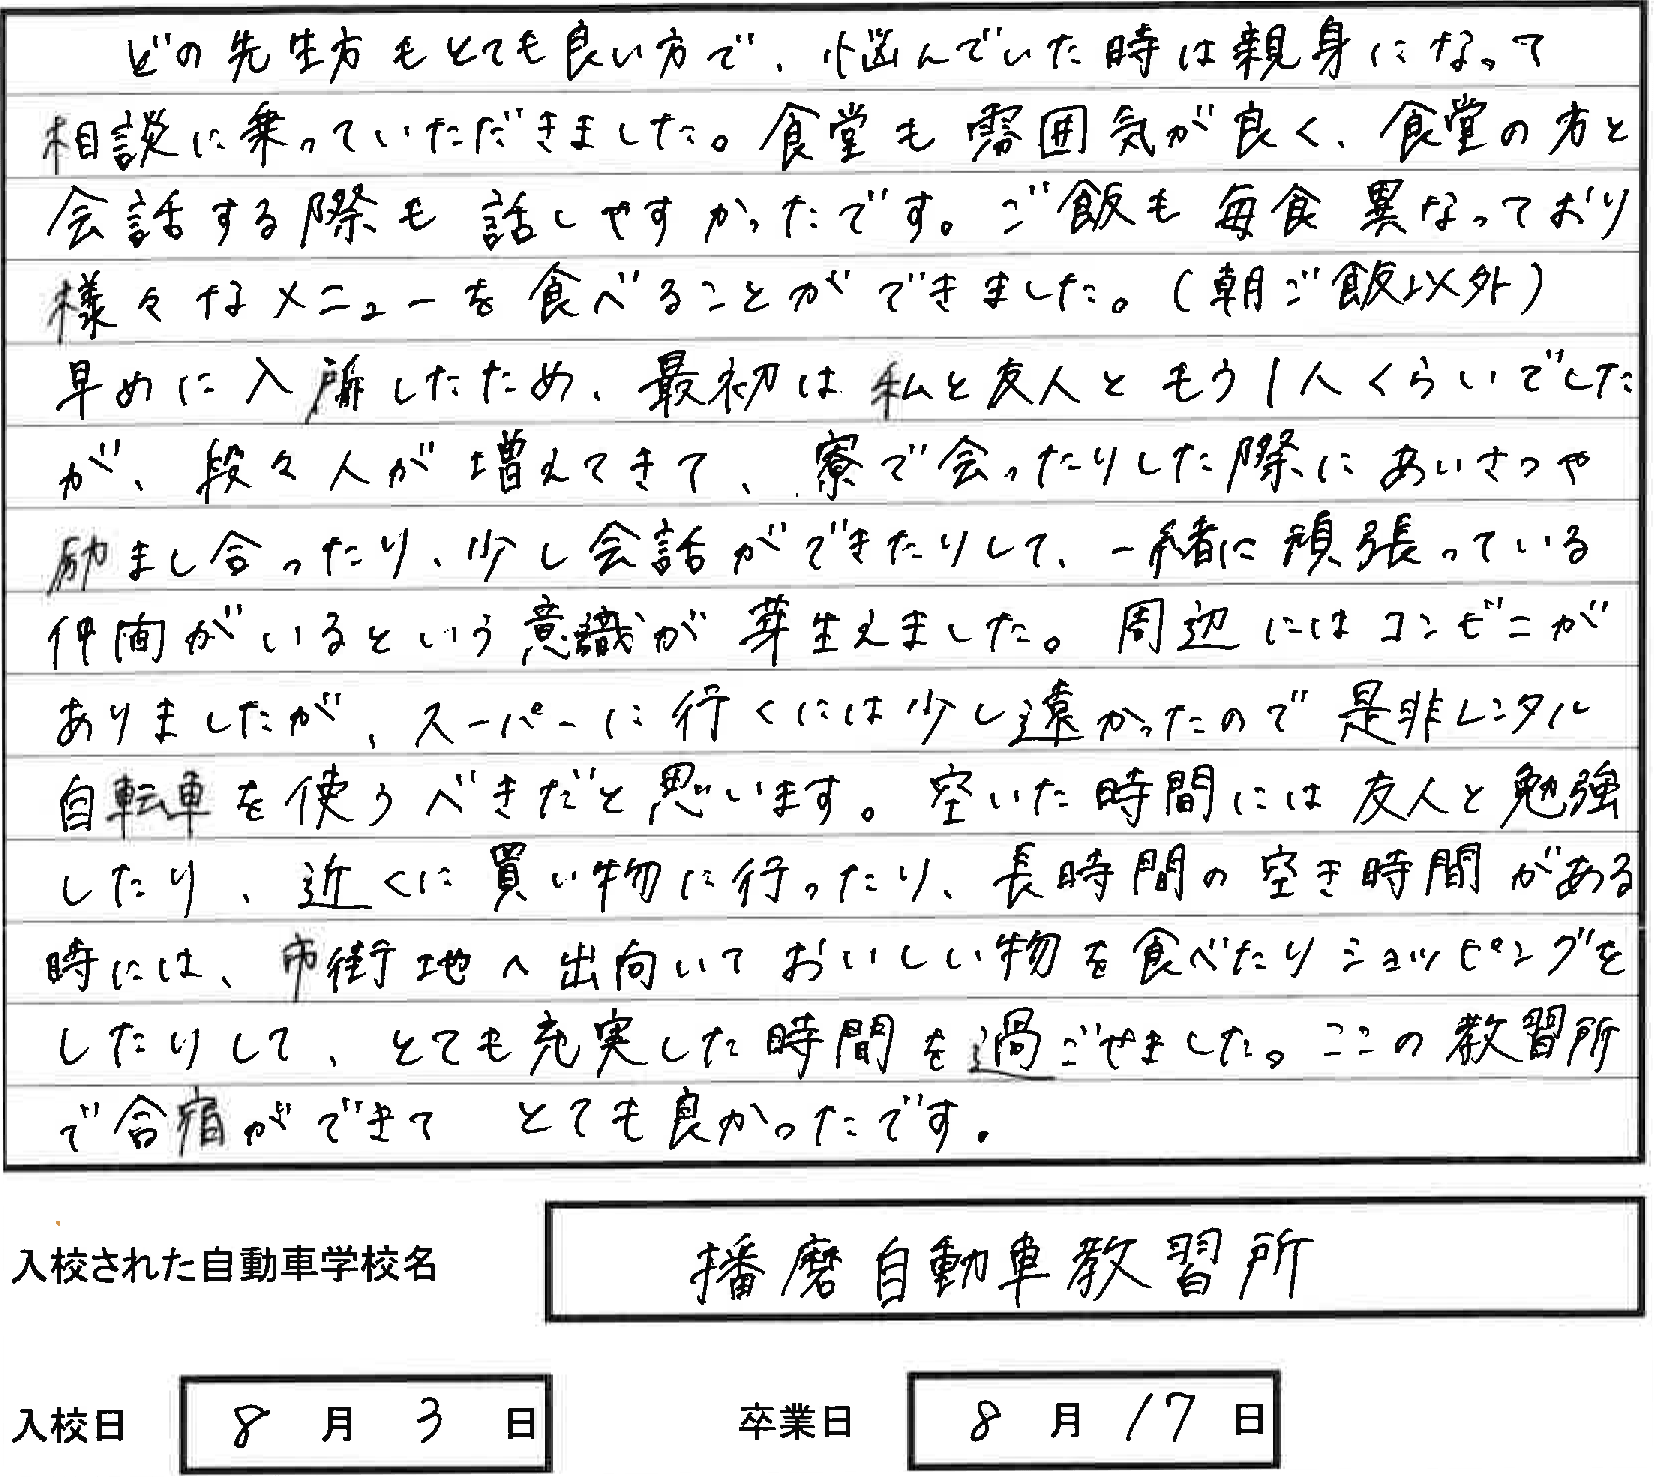 どの先生方もとても良い方で、悩んでいた時は親身になって
相談に乗っていただきました。食堂も雰囲気が良く、食堂の方と
会話する際も話しやすかったです。ご飯も毎食異なっており
様々なメニューを食べることができました。(朝ご飯以外)
早めに入所したため、最初は私と友人ともう1人くらいでした
が、段々人が増えてきて、寮で会ったりした際にあいさつや
励まし合ったり、少し会話ができたりして、一緒に頑張っている
仲間がいるという意識が芽生えました。周辺にはコンビニが
ありましたが、スーパーに行くには少し遠かったので是非レンタル
自転車を使うべきだと思います。空いた時間には友人と勉強
したり、近くに買い物に行ったり、長時間の空き時間がある
時には、市街地へ出向いておいしい物を食べたりショッピングを
したりして、とても充実した時間を過ごせました。ここの教習所
で合宿ができて とても良かったです。
入校された自動車学校名 播磨自動車教習所
入校日 8月3日 卒業日 8月17日